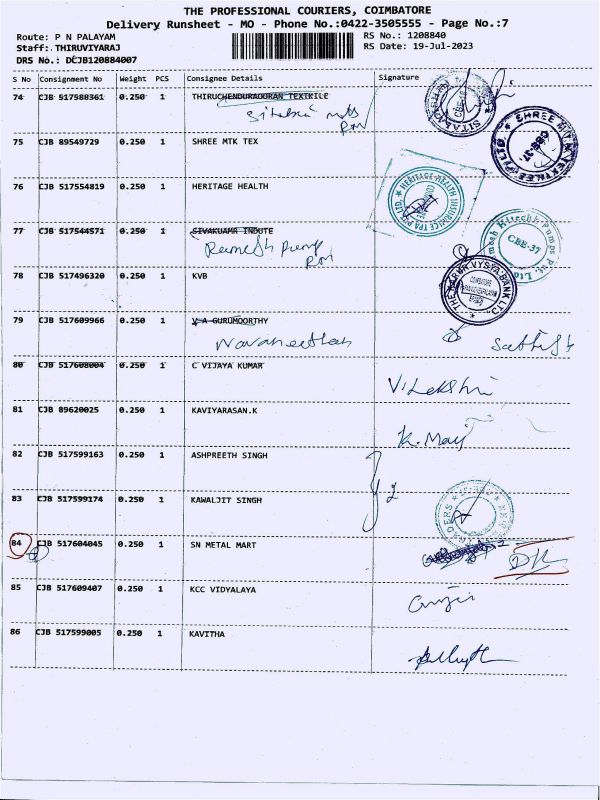 THE PROFESSIONAL COURIERS, COIMBATORE
Delivery Runsheet - MO - Phone No.:0422-3505555 - Page No.:7
Route: P N PALAYAM RS No.: 1208840
Staff: THIRUVIYARAJ RS Date: 19-Jul-2023
DRS No.: DCJB120884007
S No Consignment No Weight PCS Consignee Details Signature
74 CJB 517588361 0.250 1
75 CJB 89549729 0.250 1 SHREE MTK TEX
76 CJB 517554819 0.250 1 HERITAGE HEALTH
HERITAGE HEALTH INSURANCE TPA PVT LTD
77 CJB 517544571 0.250 1 SIVAKUAMR INDUTE
Ramesh Pump
PN
CBE-37
78 CJB 517496320 0.250 1 KVB
THE KARUR VYSYA BANK LTD
79 CJB 517609966 0.250 1 V A GURUMOORTHY
Navaneethan
Sathish
80 CJB 517608004 0.250 1 C VIJAYA KUMAR
V. Lekshmi
81 CJB 89620025 0.250 1 KAVIYARASAN.K
82 CJB 517599163 0.250 1 ASHPREETH SINGH
83 CJB 517599174 0.250 1 KAWALJIT SINGH
2
84 CJB 517604045 0.250 1 SN METAL MART
85 CJB 517609407 0.250 1 KCC VIDYALAYA
86 CJB 517599005 0.250 1 KAVITHA